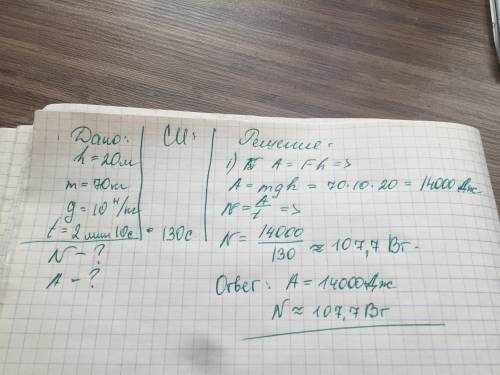 Дано:
h = 20м
m = 70кг
g = 10 Н/кг
t = 2 мин 10с
N – ?
A – ?
СИ:
130с
Решение:
1) A = Fh =>
A = mgh = 70·10·20 = 14000 Дж
N = A/t =>
N = 14000/130 ≈ 107,7 Вт.
Ответ: A = 14000 Дж
N ≈ 107,7 Вт